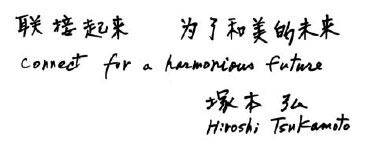 联接起来 为了和美的未来
connect for a harmonious future
塚本 弘
Hiroshi Tsukamoto